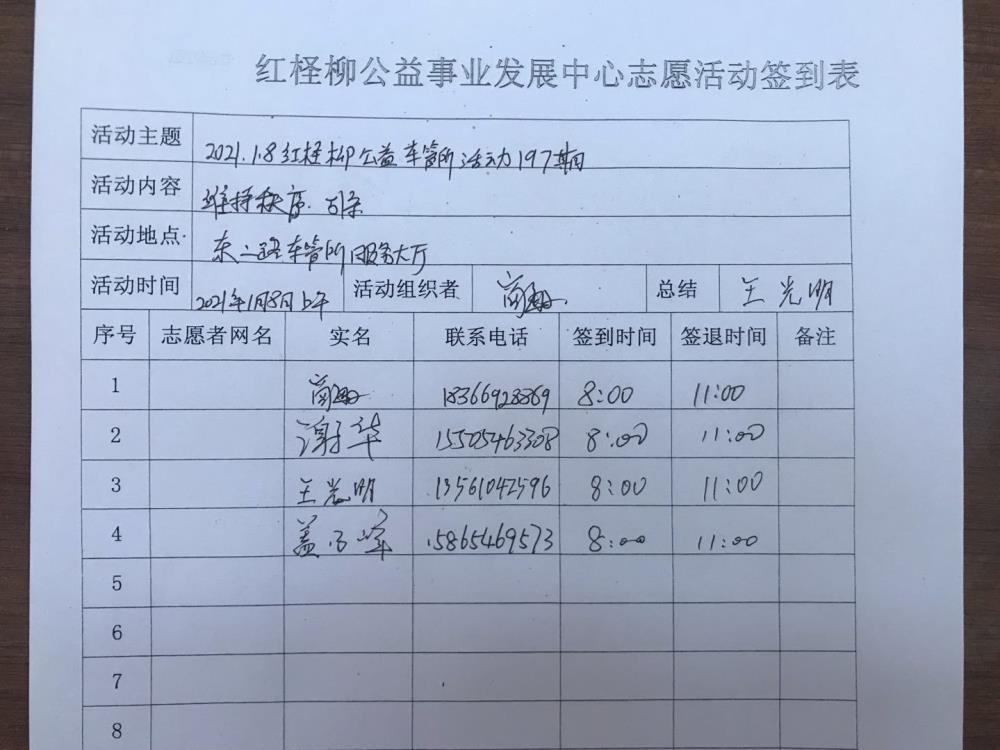 红柽柳公益事业发展中心志愿活动签到表
活动主题 2021.1.8红柽柳公益车管所活动197期
活动内容 维持秩序.
活动地点 东二路车管所服务大厅
活动时间 2021年1月8日上午 活动组织者 总结 王光明
序号 志愿者网名 实名 联系电话 签到时间 签退时间 备注
1 18366928869 8:00 11:00
2 谢华 15505463308 8:00 11:00
3 王光明 13561042596 8:00 11:00
4 15865469573 8:00 11:00
5
6
7
8